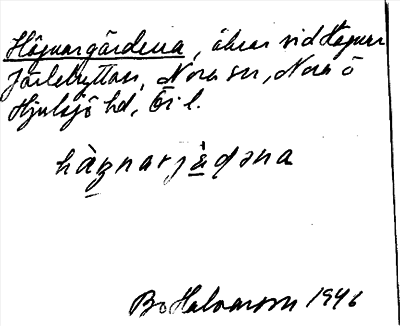 Högnargärdena, åkrar vid Hagnar
Järlehyttan, Nora sn, Nora o
Hjulsjö hd, Ör. l.
hàgnarjàdəna
Bo Halvarson 1946